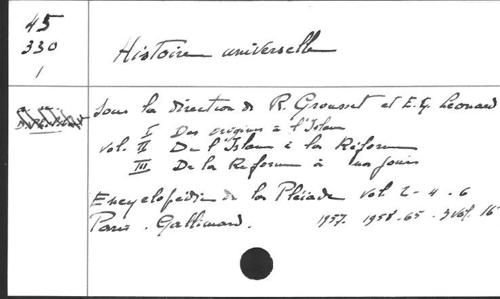 45
330
1
Histoire universelle
Sous la direction de R. Grousset et E. G. Léonard
I Des origines à l'Islam
vol. II De l'Islam à la Réforme
III De la Réforme à nos jours
Encyclopédie de la Pléiade vol. 2 - 4 - 6
Paris. Gallimard. 1957. 1958 - 65 - 3 vol. 16